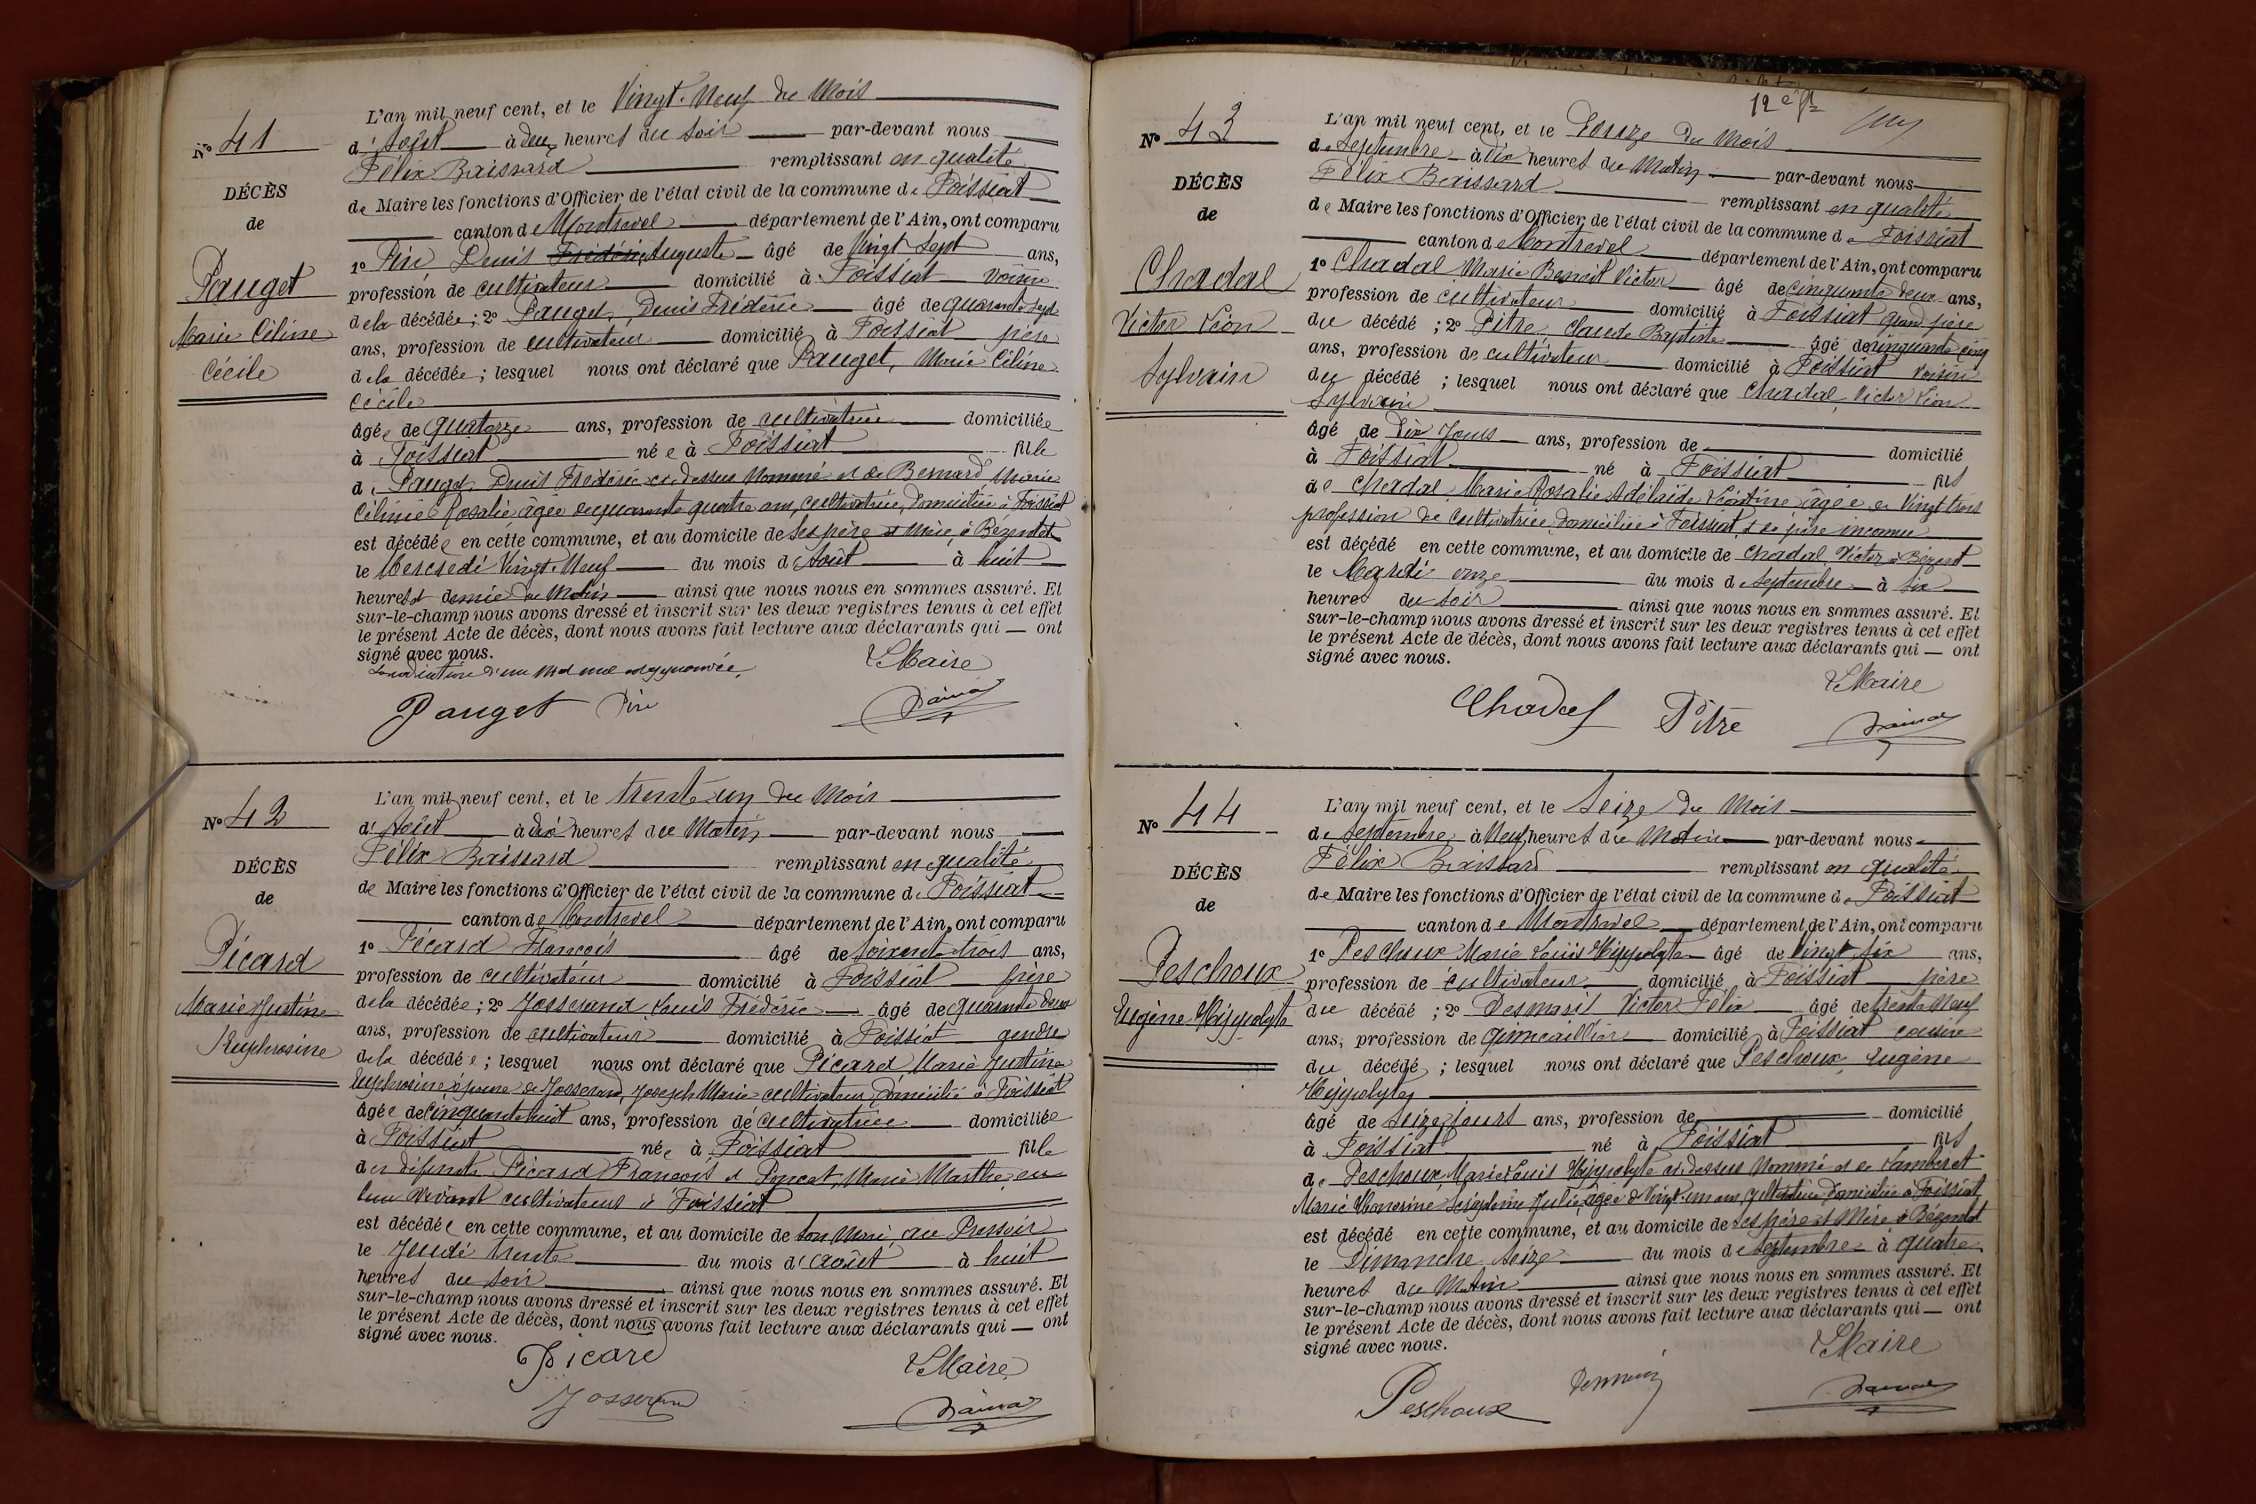 No 41
DÉCÈS
de
Pauget
Marie Céline
Cécile
L'an mil neuf cent, et le Vingt-Neuf du Mois
d'Août à deux heures du soir par-devant nous
Félix Baissard remplissant en qualité
de Maire les fonctions d'Officier de l'état civil de la commune de Foissiat
canton de Montrevel département de l'Ain, ont comparu
1o Piri Denis Frédéric Auguste âgé de Vingt Sept ans,
profession de cultivateur domicilié à Foissiat voisin
de la décédée ; 2o Pauget, Denis Frédéric âgé de quarante sept
ans, profession de cultivateur domicilié à Foissiat père
de la décédée ; lesquel nous ont déclaré que Pauget, Marie Céline
Cécile
âgée de quatorze ans, profession de cultivatrice domiciliée
à Foissiat née à Foissiat fille
de Pauget Denis Frédéric ci-dessus nommé et de Bernard Marie
Céline Rosalie âgée de quarante quatre ans, cultivatrice, domiciliée à Foissiat
est décédée en cette commune, et au domicile de ses père et mère, à Béyndet
le Mercredi Vingt-Neuf du mois d'Août à huit
heures et demie du matin ainsi que nous nous en sommes assuré. Et
sur-le-champ nous avons dressé et inscrit sur les deux registres tenus à cet effet
le présent Acte de décès, dont nous avons fait lecture aux déclarants qui — ont
signé avec nous.
La radiation d'un mot nul approuvée.
Le Maire
Pauget Piri
No 42
DÉCÈS
de
Picard
Marie Justine
Euphrosine
L'an mil neuf cent, et le trente-un du Mois
d'Août à dix heures du Matin par-devant nous
Félix Baissard remplissant en qualité
de Maire les fonctions d'Officier de l'état civil de la commune de Foissiat
canton de Montrevel département de l'Ain, ont comparu
1o Picard François âgé de soixante-trois ans,
profession de cultivateur domicilié à Foissiat frère
de la décédée ; 2o Josserand Louis Frédéric âgé de quarante deux
ans, profession de cultivateur domicilié à Foissiat gendre
de la décédée ; lesquel nous ont déclaré que Picard Marie Justine
Euphrosine épouse de Josserand, Joseph Marie cultivateur, domicilié à Foissiat
âgée de cinquante huit ans, profession de cultivatrice domiciliée
à Foissiat née à Foissiat fille
des défunts Picard François et Poncet, Marie Marthe, en
leur vivant cultivateurs à Foissiat
est décédée en cette commune, et au domicile de son Mari, au Pressoir
le Jeudi trente du mois d'août à huit
heures du soir ainsi que nous nous en sommes assuré. Et
sur-le-champ nous avons dressé et inscrit sur les deux registres tenus à cet effet
le présent Acte de décès, dont nous avons fait lecture aux déclarants qui — ont
signé avec nous.
Picard Le Maire
Josserand
12 e
No 43
DÉCÈS
de
Chadal
Victor Léon
Sylvain
L'an mil neuf cent, et le Douze du Mois
de Septembre à dix heures du Matin par-devant nous
Félix Baissard remplissant en qualité
de Maire les fonctions d'Officier de l'état civil de la commune de Foissiat
canton de Montrevel département de l'Ain, ont comparu
1o Chadal Marie Benoit Victor âgé de cinquante deux ans,
profession de cultivateur domicilié à Foissiat grand père
du décédé ; 2o Pitre, Claude Baptiste âgé de cinquante cinq
ans, profession de cultivateur domicilié à Foissiat voisin
du décédé ; lesquel nous ont déclaré que Chadal Victor Léon
Sylvain
âgé de Dix jours ans, profession de domicilié
à Foissiat né à Foissiat fils
de Chadal, Marie Rosalie Adélaïde Léontine âgée de Vingt trois
profession de cultivatrice, domiciliée à Foissiat, et de père inconnu
est décédé en cette commune, et au domicile de Chadal Victor à Bézent
le Mardi onze du mois de Septembre à six
heures du soir ainsi que nous nous en sommes assuré. Et
sur-le-champ nous avons dressé et inscrit sur les deux registres tenus à cet effet
le présent Acte de décès, dont nous avons fait lecture aux déclarants qui — ont
signé avec nous.
Le Maire
Chadal Pitre
No 44
DÉCÈS
de
Peschoux
Eugène Hippolyte
L'an mil neuf cent, et le Seize du Mois
de Septembre à Neuf heures du Matin par-devant nous
Félix Baissard remplissant en qualité
de Maire les fonctions d'Officier de l'état civil de la commune de Foissiat
canton de Montrevel département de l'Ain, ont comparu
1o Peschoux Marie Louis Hippolyte âgé de Vingt six ans,
profession de cultivateur domicilié à Foissiat père
du décédé ; 2o Desmaris Victor Félix âgé de trente Neuf
ans, profession de quincaillier domicilié à Foissiat cousin
du décédé ; lesquel nous ont déclaré que Peschoux, Eugène
Hippolyte
âgé de seize jours ans, profession de domicilié
à Foissiat né à Foissiat fils
de Peschoux, Marie Louis Hippolyte ci-dessus nommé et de Lamberet
Marie Julie, âgée de Vingt-un ans, cultivatrice domiciliée à Foissiat
est décédé en cette commune, et au domicile de ses père et Mère à Béyndet
le Dimanche Seize du mois de Septembre à quatre
heures du Matin ainsi que nous nous en sommes assuré. Et
sur-le-champ nous avons dressé et inscrit sur les deux registres tenus à cet effet
le présent Acte de décès, dont nous avons fait lecture aux déclarants qui — ont
signé avec nous.
Le Maire
Peschoux